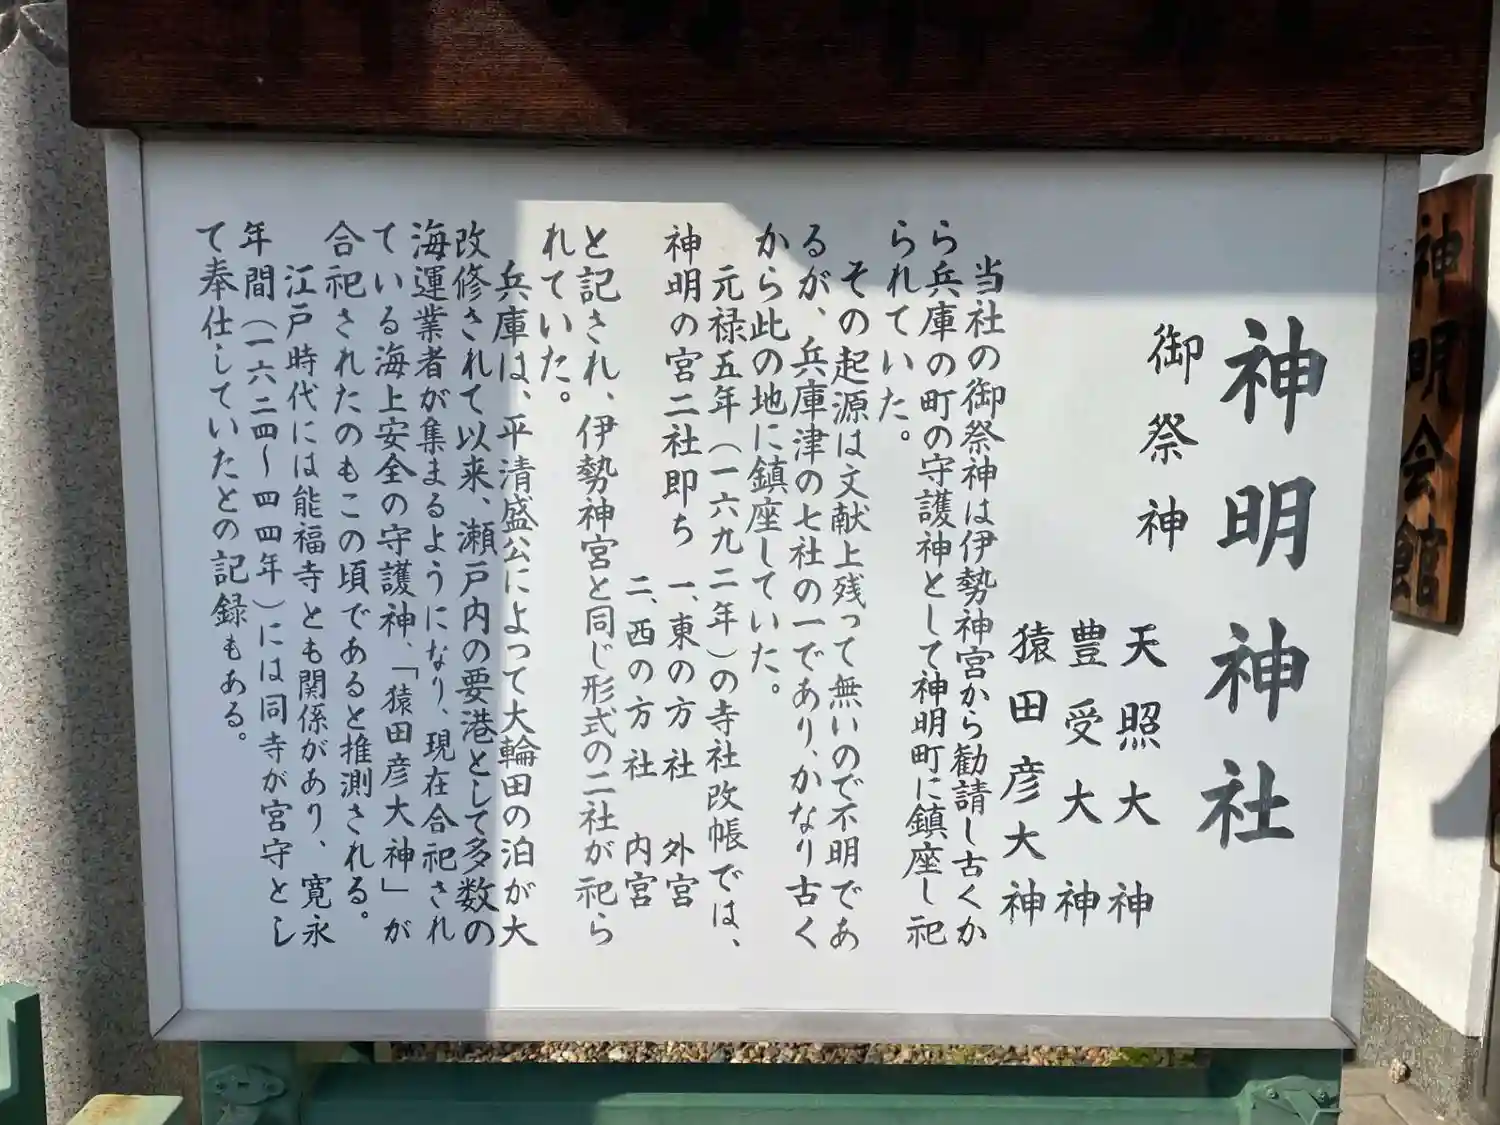 神明神社
御祭神
天照大神
豊受大神
猿田彦大神
当社の御祭神は伊勢神宮から勧請し古くか
ら兵庫の町の守護神として神明町に鎮座し祀
られていた。
その起源は文献上残って無いので不明であ
るが、兵庫津の七社の一であり、かなり古く
から此の地に鎮座していた。
元禄五年（一六九二年）の寺社改帳では、
神明の宮二社即ち 一、東の方社 外宮
二、西の方社 内宮
と記され、伊勢神宮と同じ形式の二社が祀ら
れていた。
兵庫は、平清盛公によって大輪田の泊が大
改修されて以来、瀬戸内の要港として多数の
海運業者が集まるようになり、現在合祀され
ている海上安全の守護神、「猿田彦大神」が
合祀されたのもこの頃であると推測される。
江戸時代には能福寺とも関係があり、寛永
年間（一六二四～四四年）には同寺が宮守とし
て奉仕していたとの記録もある。
神明会館